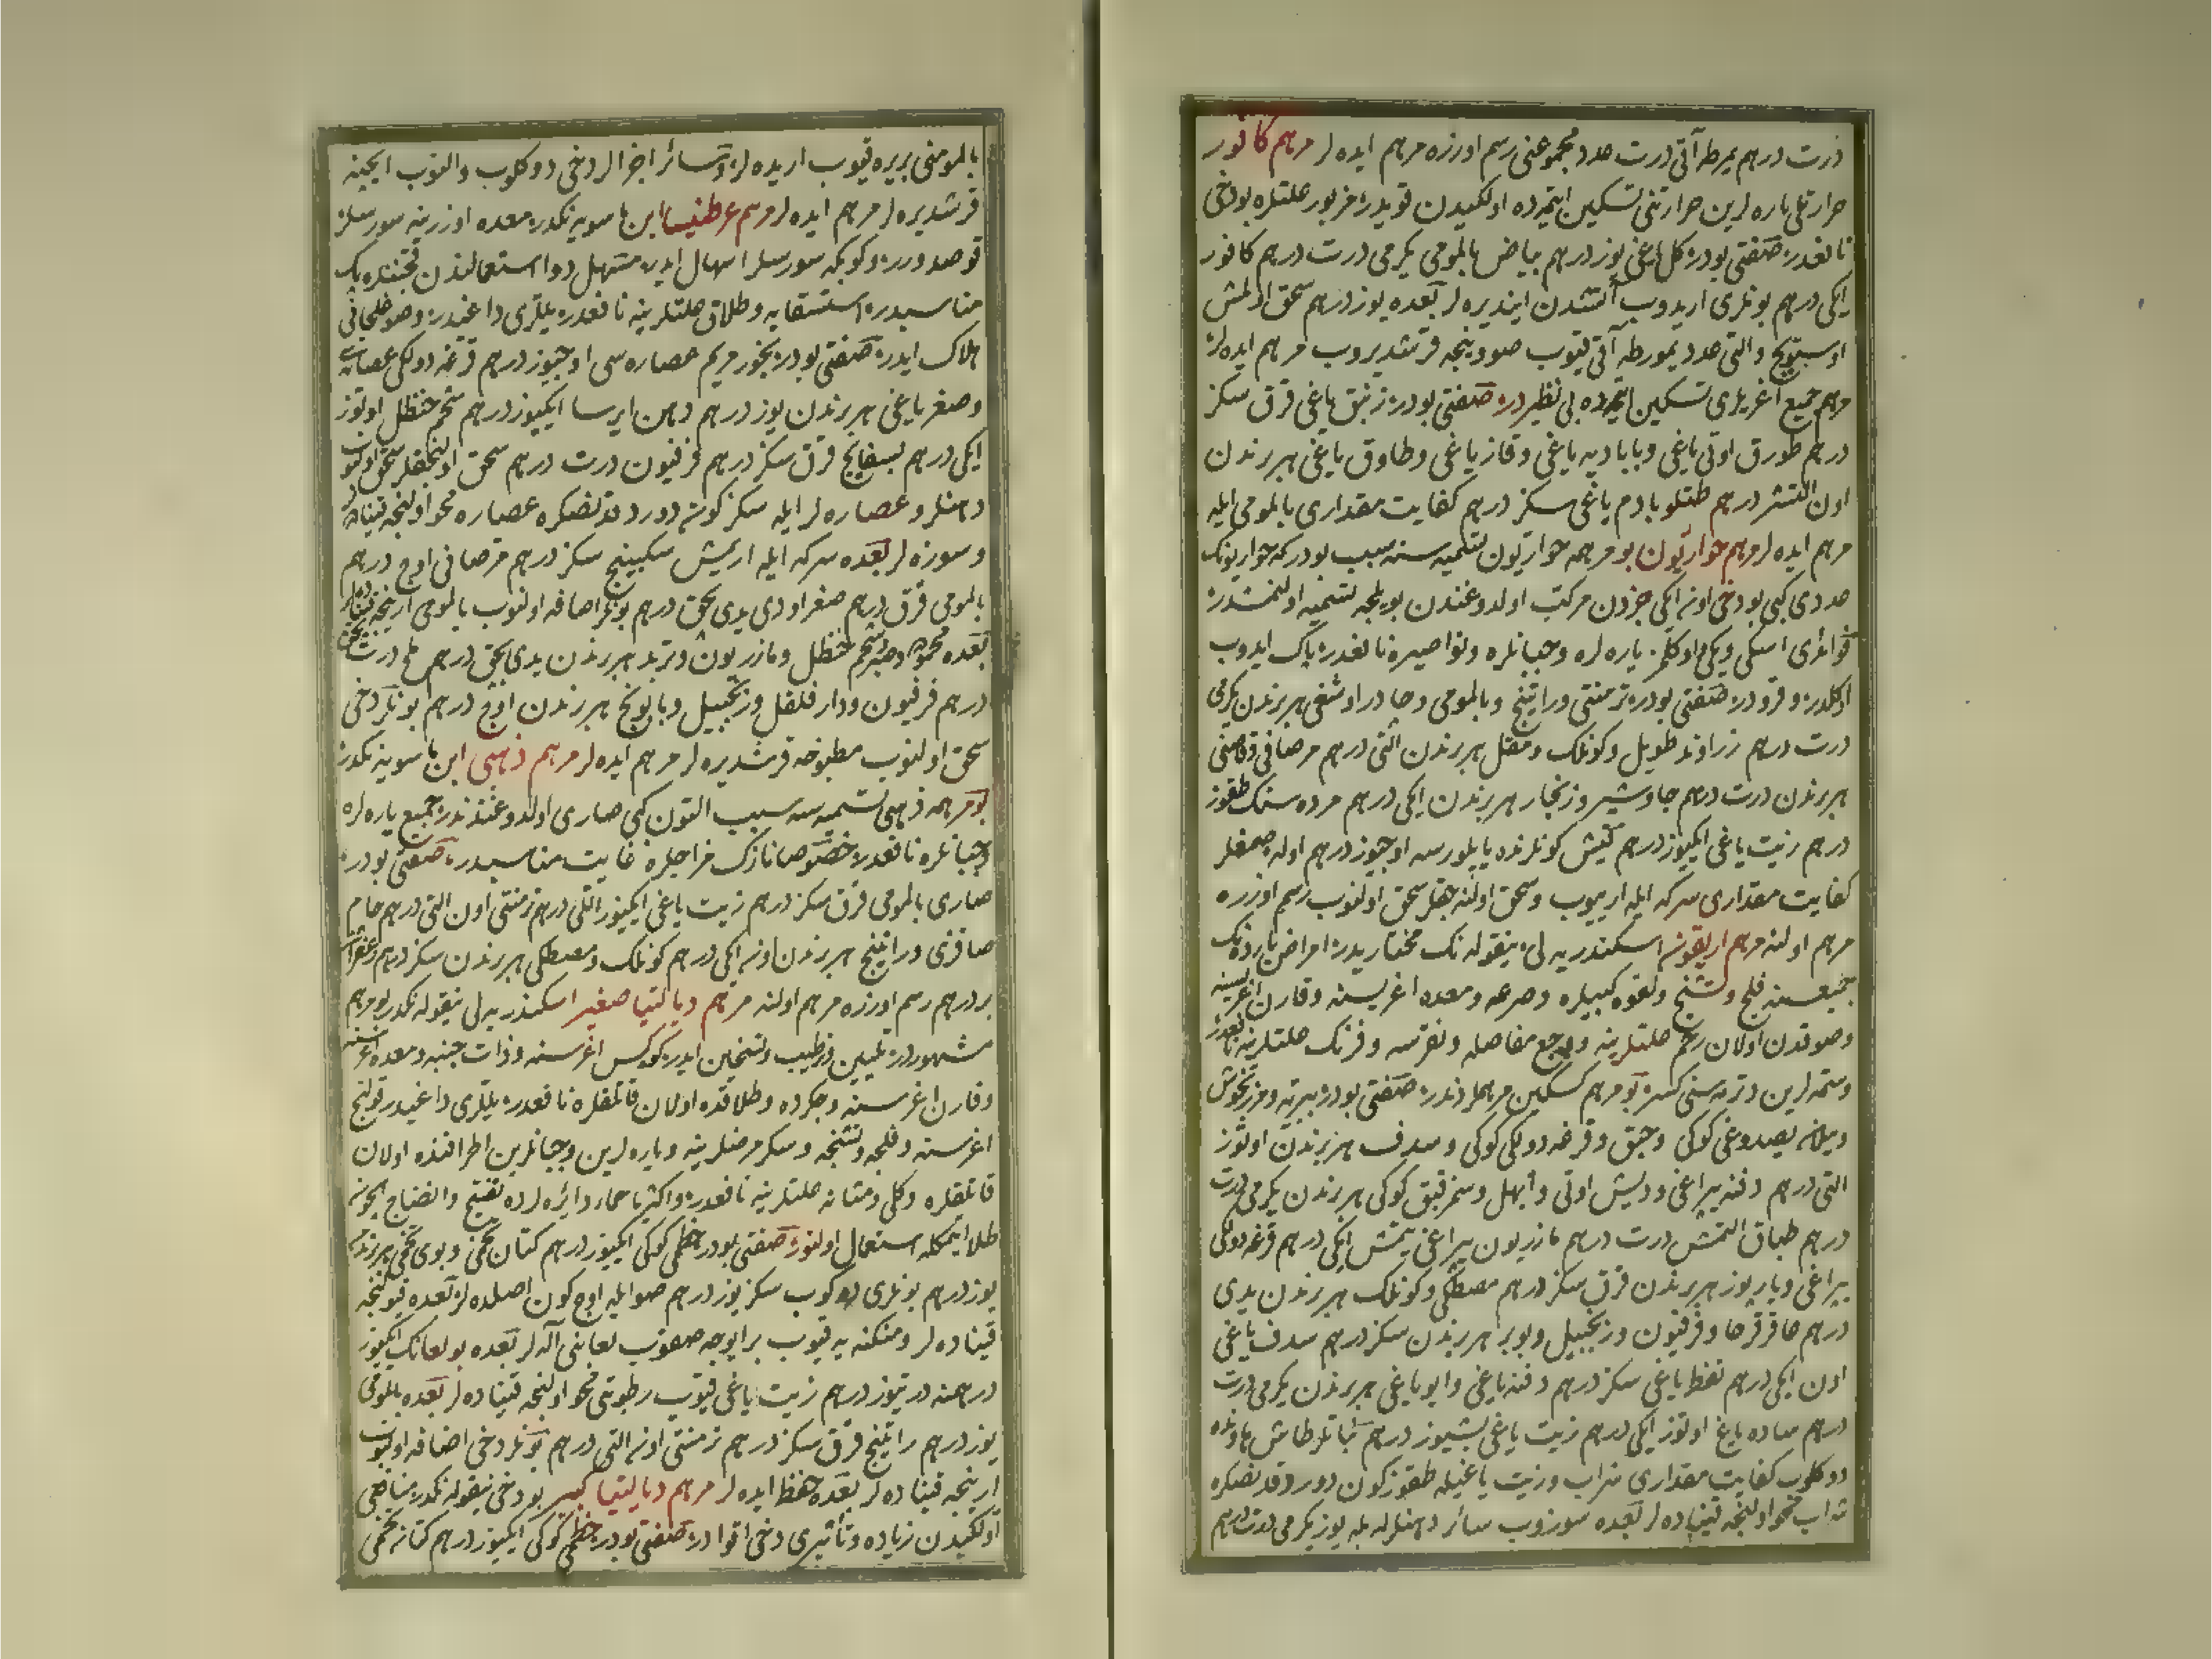 درت درهم يمرطه آقی درت عدد مجموعنی رسم اوزره مرهم ایده لر مرهم کافور
حرارتلی یاره لرین حرارتنی تسکین ایتمه ده اولکیدن قویدر مزبور علتلره بودخی
نافعدر صنعتی بودر کل یاغی یوز درهم بیاض بالمومی یکرمی درت درهم کافور
ایکی درهم بونلری اریدوب آتشدن ایندیره لر بعده یوز درهم سحق اولمش
اوسبتویج والتی عدد یمورطه آقی قیوب صوودینجه قرشدیروب مرهم ایده لر
مرهم جمیع اغریلری تسکین ایتمه ده بی نظیردر صنعتی بودر زنبق یاغی قرق سکز
درهم طورق اوتی یاغی وبابادیه یاغی وقاز یاغی وطاوق یاغی هربرندن
اون التشر درهم طتلو بادم یاغی سکز درهم کفایت مقداری بالمومی ایله
مرهم ایده لر مرهم حواریون بو مرهمه حواریون تسمیه سنه سبب بودر که حواریونک
عددی کبی بودخی اون ایکی جزدن مرکب اولدوغندن بویلجه تسمیه اولنمشدر
فوائدی اسکی ویکی اوکلمز یاره لره وجبانلره ونواصیره نافعدر پاک ایدوب
اوکلدر وقرودر صنعتی بودر ترمنتی وراتینج وبالمومی وجادر اوشغی هربرندن یکرمی
درت درهم زراوند طویل وکونلک ومقل هربرندن التی درهم مرصافی وقاصنی
هربرندن درت درهم جاوشیر وزنجار هربرندن ایکی درهم مرده سنک طقوز
درهم زیت یاغی ایکیوز درهم قیش کونلرنده یاپیلورسه اوچیوز درهم اوله صمغلر
کفایت مقداری سرکه ایله اریوب وسحق اولنه جقلر سحق اولنوب رسم اوزره
مرهم اولنه مرهم اریقون اسکندریه لی نیقوله نک مختاریدر امراض بارده نک
جمیعسنه فلج وتشنج ولقوه کبیلره وصرعه ومعده اغریسنه وقارن اغریسنه
وصوقدن اولان رحم علتلرینه ووجع مفاصله ونقرسه وفرنک علتلرینه نافعدر
وستمه لرین دتره سنی کسر بو مرهم تسکین مرهملرندر صنعتی بودر بیریه ومرزنجوش
ویلانه یصدوغی کوکی وحبق وقرغه دولکی کوکی وسدف هربرندن اوتوز
التی درهم دفنه یپراغی ودیش اوتی وابهل وسمرقیق کوکی هربرندن یکرمی درت
درهم طباق التمش درت درهم مازریون یپراغی یتمش ایکی درهم قرغه دولکی
یپراغی ویارپوز هربرندن قرق سکز درهم مصطکی وکونلک هربرندن یدی
درهم عاقرقرحا وفرفیون وزنجبیل وبوبر هربرندن سکز درهم سدف یاغی
اون ایکی درهم نفط یاغی سکز درهم دفنه یاغی وایو یاغی هربرندن یکرمی درت
درهم ساده یاغ اوتوز ایکی درهم زیت یاغی بشیوز درهم نباتلر طاش هاونده
دوکلوب کفایت مقداری شراب وزیت یاغیله طقوز کون دوردقدنصکره
شراب محو اولنجه قینیاده لر بعده سوزوب سائر دهنلر ایله یوز یکرمی درت درهم
بالمومنی بریره قیوب اریده لر وسائر اجزالر دخی دوکلوب والنوب ایچینه
قرشدیره لر مرهم ایده لر مرهم عرطنیسا ابن ماسویه نکدر معده اوزرینه سورسلر
قوصدورر وکوبکه سورسلر اسهال ایدر مسهل دوا استعمالندن
مناسبدر استسقایه وطلاق علتلرینه نافعدر یللری داغیدر وصوغلجانی
هلاک ایدر صنعتی بودر بخور مریم عصاره سی اوچیوز درهم قرغه دولکی عصاره سی
وصغر یاغی هربرندن یوز درهم دهن ایرسا ایکیوز درهم شحم حنظل اوتوز
ایکی درهم بسفایج قرق سکز درهم فرفیون درت درهم سحق اولنجقلر سحق اولنوب
دهنلر وعصاره لر ایله سکز کون دوردقدنصکره عصاره محو اولنجه قینیاده لر
وسوزه لر بعده سرکه ایله اریمش سکبینج سکز درهم مرصافی اوچ درهم
بالمومی قرق درهم صغر اودی یدی بچق درهم بونلر اضافه اولنوب بالمومی ارینجه قینیاده لر
بعده محموده وصبر وشحم حنظل ومازریون وتربد هربرندن یدی بچق درهم ملح درت بچق
درهم فرفیون ودارفلفل وزنجبیل وبابونج هربرندن اوچ درهم بونلر دخی
سحق اولنوب مطبوخه قرشدیره لر مرهم ایده لر مرهم ذهبی ابن ماسویه نکدر
بو مرهمه ذهبی تسمیه سنه سبب التون کبی صاری اولدوغندندر جمیع یاره لره
وجبانلره نافعدر خصوصا نازک مزاجلره غایت مناسبدر صنعتی بودر
صاری بالمومی قرق سکز درهم زیت یاغی ایکیوز اللی درهم ترمنتی اون التی درهم جام
صاقزی وراتینج هربرندن اون ایکی درهم کونلک ومصطکی هربرندن سکز درهم زعفران
بر درهم رسم اوزره مرهم اولنه مرهم دیالتیا صغیر اسکندریه لی نیقوله نکدر بو مرهم
مشهوردر تلیین وترطیب وتسخین ایدر کوکس اغریسنه وذات جنبه ومعده اغریسنه
وقارن اغریسنه وجکرده وطلاقده اولان قاتیلقلره نافعدر یللری داغیدر قولنج
اغریسنه وفلجه وتشنجه وسکر مرضلرینه ویاره لرین وجبانلرین اطرافنده اولان
قاتیلقلره وکلی ومثانه علتلرینه نافعدر واکثریا حماء دائره لرده تفتیح وانضاج ایچون
طلا ایتمکله استعمال اولنور صنعتی بودر خطمی کوکی ایکیوز درهم کتان تخمی وبوی تخمی هربرندن
یوز درهم بونلری دوکوب سکز یوز درهم صو ایله اوچ کون اصلده لر بعده قیولنجه
قینیاده لر ومنکنه یه قیوب برایوجه صقوب لعابنی آله لر بعده بو لعابک ایکیوز
درهمنه درتیوز درهم زیت یاغی قیوب رطوبتی محو اولنجه قینیاده لر بعده بالمومی
یوز درهم راتینج قرق سکز درهم ترمنتی اون التی درهم بونلر دخی اضافه اولنوب
ارینجه قینیاده لر بعده حفظ ایده لر مرهم دیالتیا کبیر بودخی نیقوله نکدر منافعی
اولکیدن زیاده وتأثیری دخی اقوادر صنعتی بودر خطمی کوکی ایکیوز درهم کتان تخمی